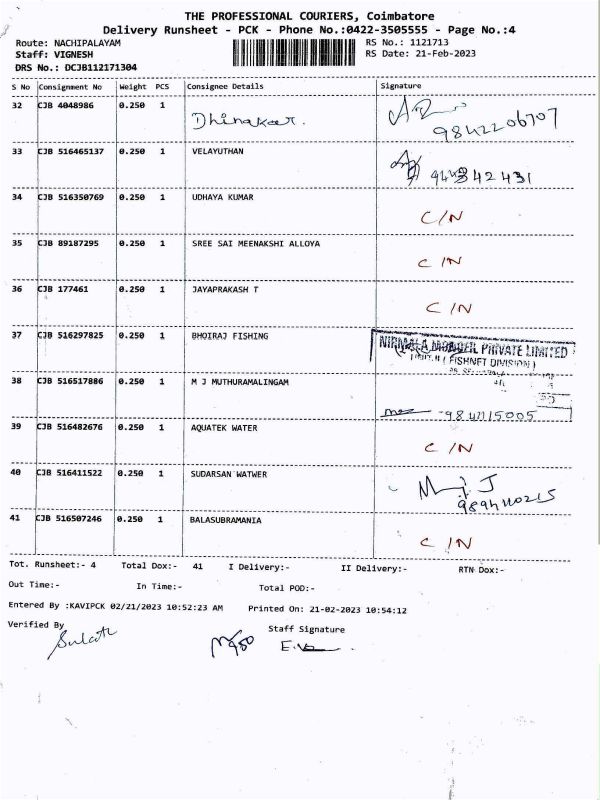 THE PROFESSIONAL COURIERS, Coimbatore
Delivery Runsheet - PCK - Phone No.:0422-3505555 - Page No.:4
Route: NACHIPALAYAM RS No.: 1121713
Staff: VIGNESH RS Date: 21-Feb-2023
DRS No.: DCJB112171304
S No Consignment No Weight PCS Consignee Details Signature
32 CJB 4048986 0.250 1 Dhinakar. 9842206707
33 CJB 516465137 0.250 1 VELAYUTHAN
34 CJB 516350769 0.250 1 UDHAYA KUMAR C/N
35 CJB 89187295 0.250 1 SREE SAI MEENAKSHI ALLOYA C/N
36 CJB 177461 0.250 1 JAYAPRAKASH T C/N
37 CJB 516297825 0.250 1 BHOIRAJ FISHING NIRMALA MONOFIL PRIVATE LIMITED
(FISHNET DIVISION)
38 CJB 516517886 0.250 1 M J MUTHURAMALINGAM
39 CJB 516482676 0.250 1 AQUATEK WATER C/N
40 CJB 516411522 0.250 1 SUDARSAN WATWER
41 CJB 516507246 0.250 1 BALASUBRAMANIA C/N
Tot. Runsheet:- 4 Total Dox:- 41 I Delivery:- II Delivery:- RTN Dox:-
Out Time:- In Time:- Total POD:-
Entered By :KAVIPCK 02/21/2023 10:52:23 AM Printed On: 21-02-2023 10:54:12
Verified By Staff Signature